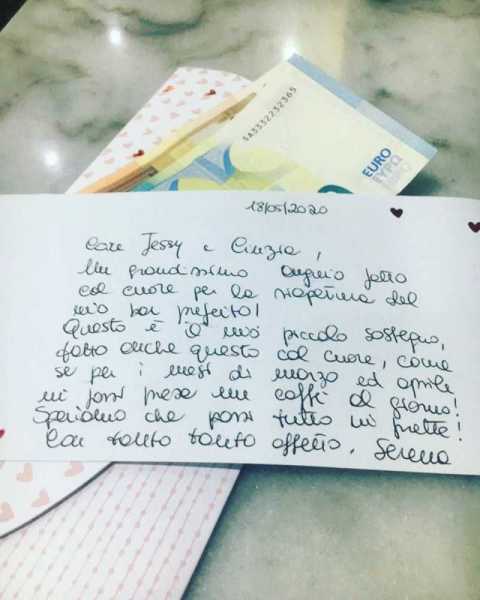 SA3332232365
EURO
ΕΥΡΩ
18/05/2020
Care Jessy e Cinzia,
Un grandissimo augurio fatto
col cuore per la riapertura del
mio bar preferito!
Questo è il mio piccolo sostegno,
fatto anche questo col cuore, come
se per i mesi di marzo ed aprile
mi fossi presa un caffè al giorno!
Speriamo che passi tutto in fretta!
Con tanto tanto affetto. Serena